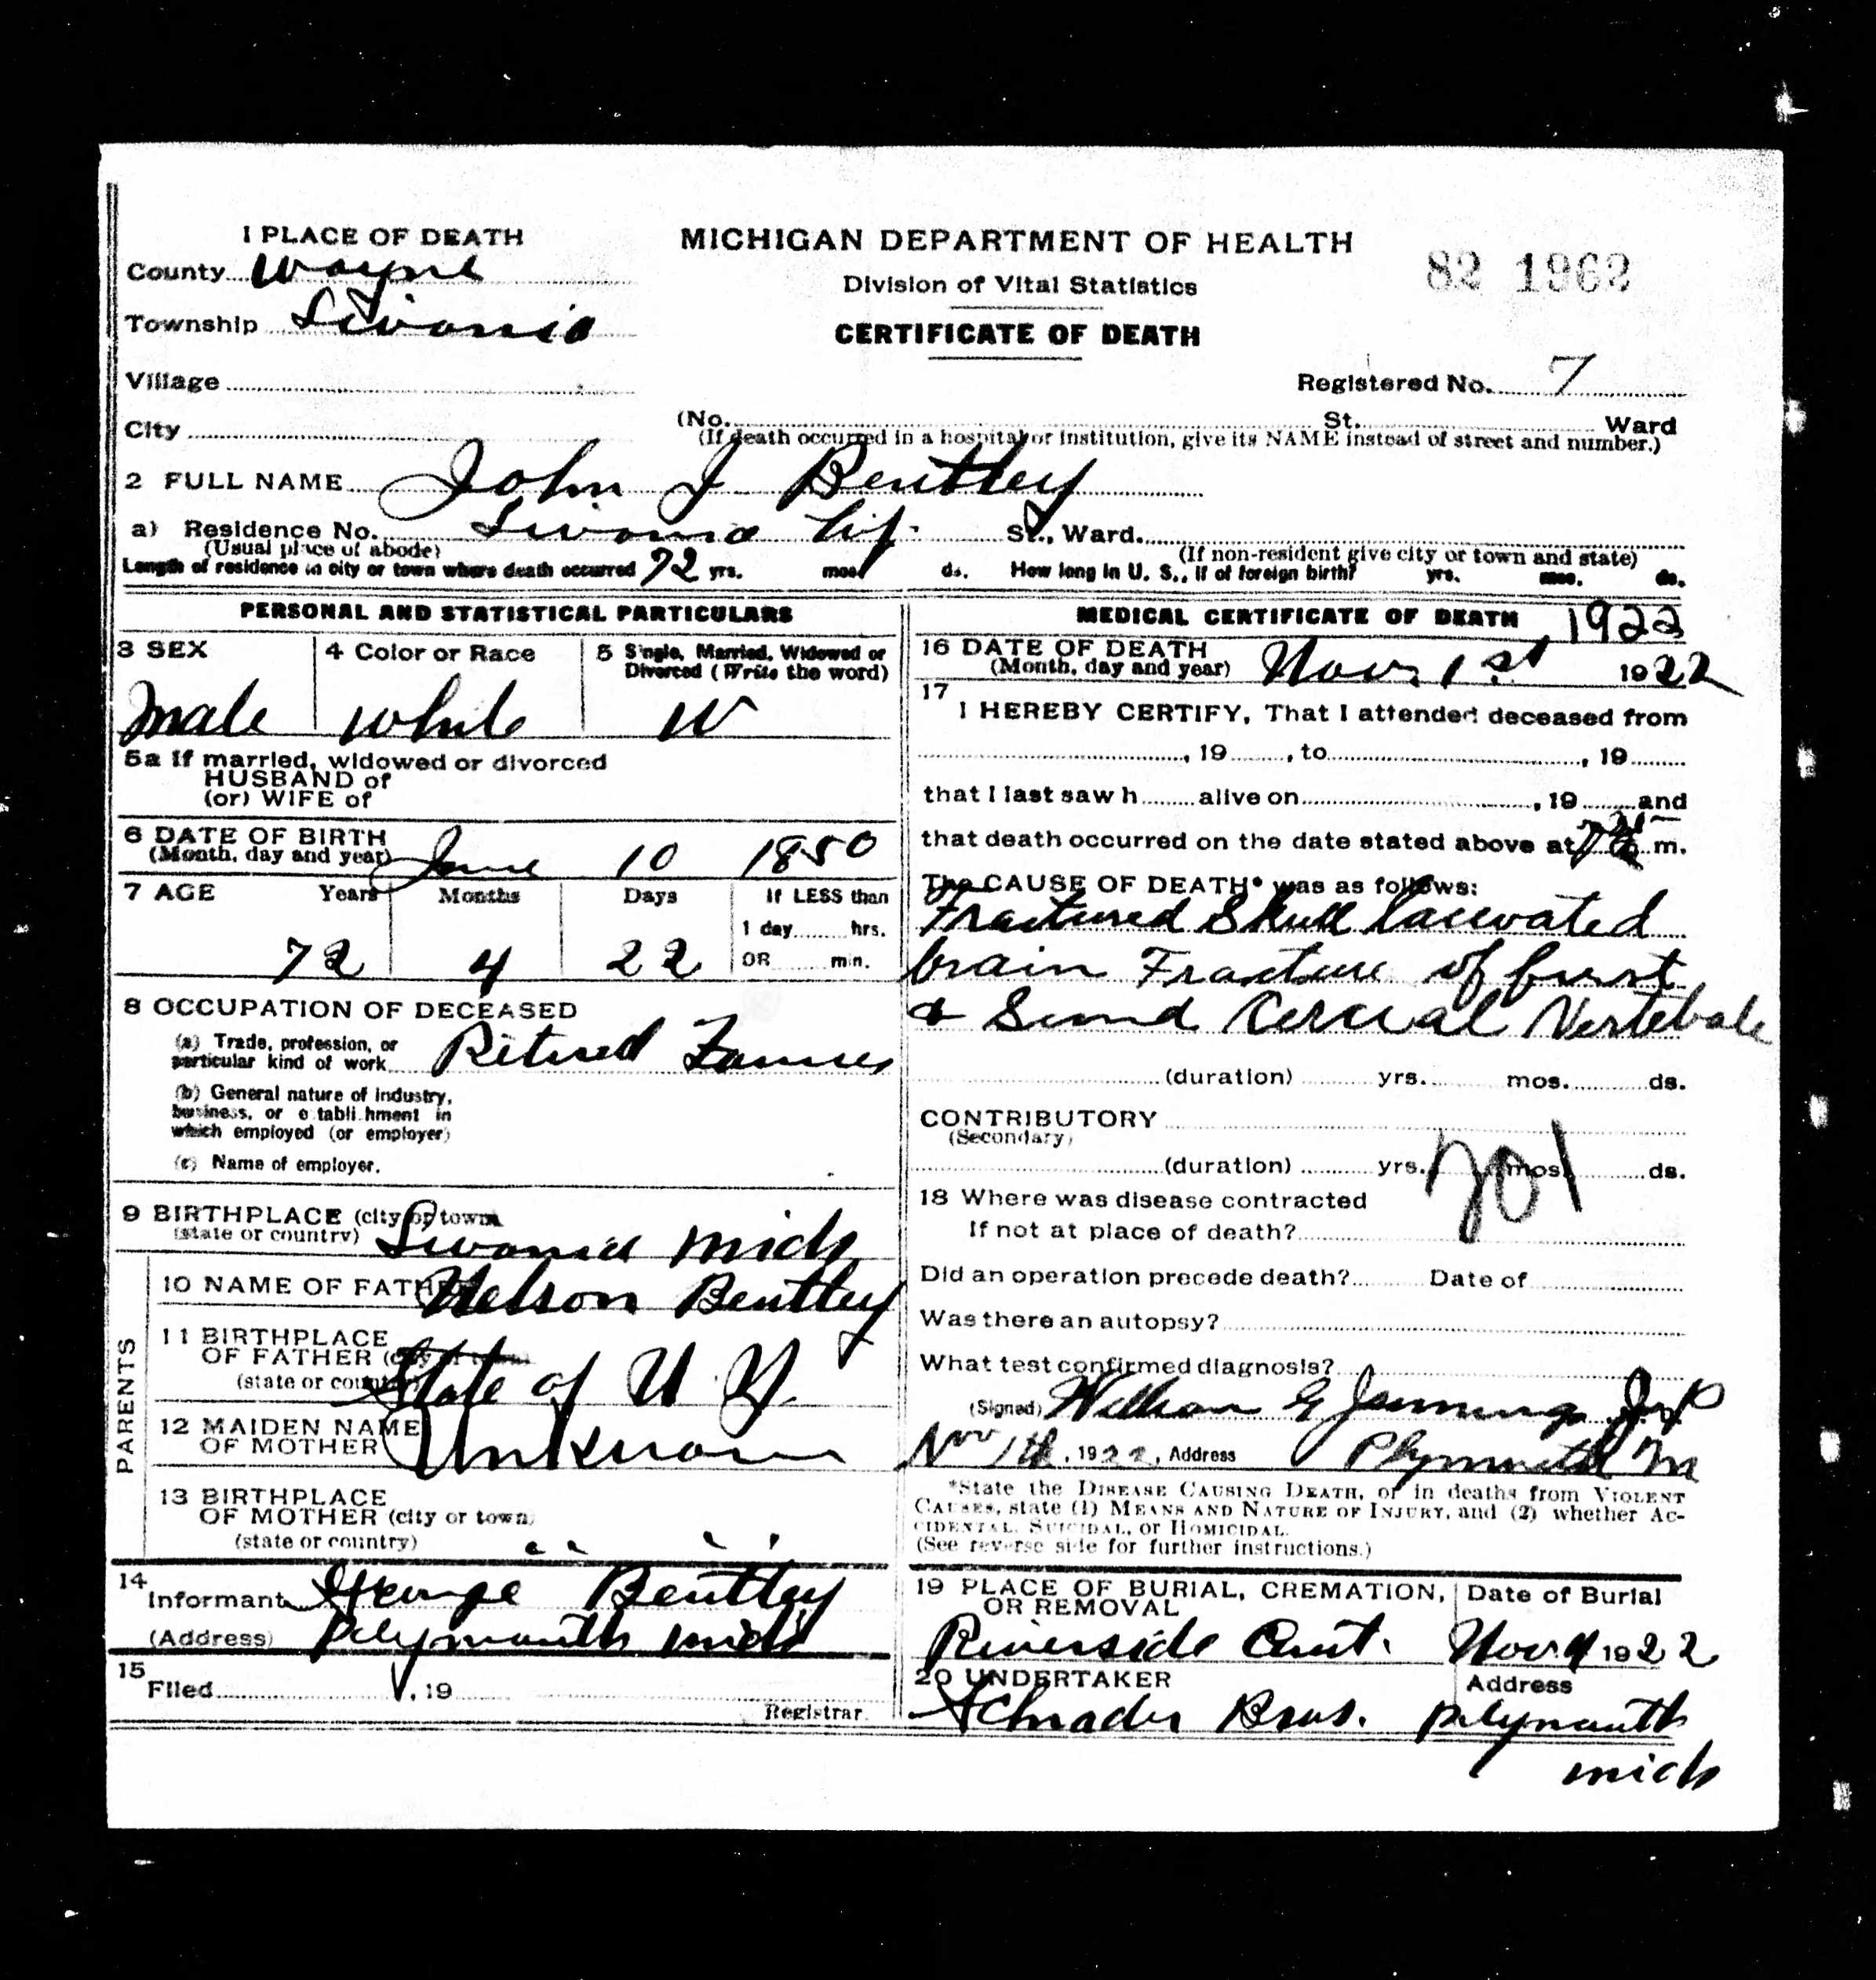 1 PLACE OF DEATH
County Wayne
Township Livonia
Village
City
MICHIGAN DEPARTMENT OF HEALTH
Division of Vital Statistics
CERTIFICATE OF DEATH
82 1962
Registered No. 7
(No. St. Ward
(If death occurred in a hospital or institution, give its NAME instead of street and number.)
2 FULL NAME John J Bentley
a) Residence No. Livonia St., Ward.
(Usual place of abode) (If non-resident give city or town and state)
Length of residence in city or town where death occurred 72 yrs. mos. ds. How long in U. S., if of foreign birth? yrs. mos. ds.
PERSONAL AND STATISTICAL PARTICULARS
3 SEX
Male
4 Color or Race
White
5 Single, Married, Widowed or
Divorced (Write the word)
W
5a If married, widowed or divorced
HUSBAND of
(or) WIFE of
6 DATE OF BIRTH
(Month, day and year) June 10 1850
7 AGE Years Months Days If LESS than
1 day hrs.
72 4 22 OR min.
8 OCCUPATION OF DECEASED
(a) Trade, profession, or
particular kind of work Retired Farmer
(b) General nature of industry,
business, or establishment in
which employed (or employer)
(c) Name of employer.
9 BIRTHPLACE (city or town)
(state or country) Livonia Mich
PARENTS
10 NAME OF FATHER Nelson Bentley
11 BIRTHPLACE
OF FATHER (city or town)
(state or country) State of N. Y.
12 MAIDEN NAME
OF MOTHER Unknown
13 BIRTHPLACE
OF MOTHER (city or town)
(state or country) " "
14
Informant George Bentley
(Address) Plymouth Mich
15
Filed , 19
Registrar
MEDICAL CERTIFICATE OF DEATH 1922
16 DATE OF DEATH
(Month, day and year) Nov. 1st 1922
17
I HEREBY CERTIFY, That I attended deceased from
, 19 , to , 19
that I last saw h alive on , 19 and
that death occurred on the date stated above at m.
The CAUSE OF DEATH* was as follows:
Fractured Skull lacerated
brain Fracture of first
& Second Cervical Vertebale
(duration) yrs. mos. ds.
CONTRIBUTORY
(Secondary)
(duration) yrs. mos. ds.
201
18 Where was disease contracted
If not at place of death?
Did an operation precede death? Date of
Was there an autopsy?
What test confirmed diagnosis?
(Signed) William G Jennings J.P
Nov , 1922, Address Plymouth M
*State the DISEASE CAUSING DEATH, or in deaths from VIOLENT
CAUSES, state (1) MEANS AND NATURE OF INJURY, and (2) whether AC-
CIDENTAL, SUICIDAL, or HOMICIDAL.
(See reverse side for further instructions.)
19 PLACE OF BURIAL, CREMATION,
OR REMOVAL
Riverside Cemt.
Date of Burial
Nov. 4 1922
20 UNDERTAKER
Schrader Bros.
Address
Plymouth
Mich